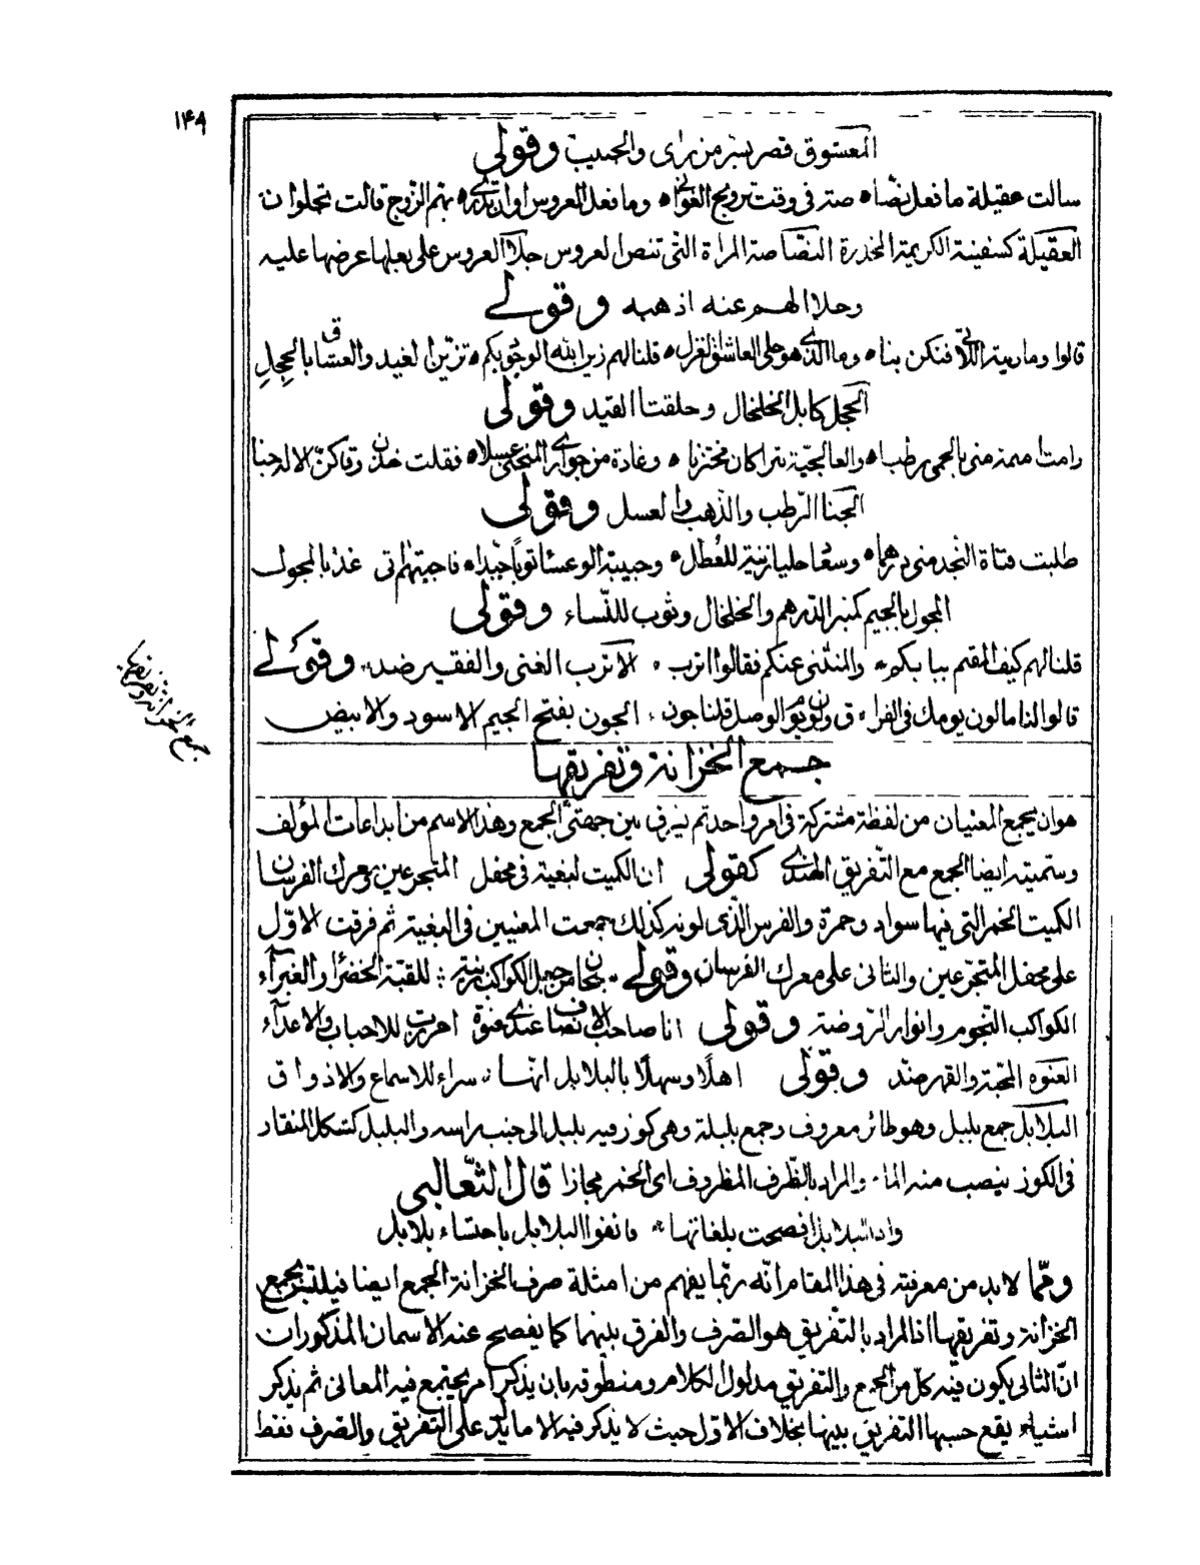 ۱۴۹
المعشوق قصر بسر من رأى والحبيب وقولى
سالت عقيلة ما فعل نضاصة فى وقت ترويج الغوانى وما فعل العروس اولدى بتم الزوج قالت تجلوا ن
العقيلة كسفينة الكريمة المخدرة النضاصة المراة التى تنص العروس جلا العروس على بعلها عرضها عليه
وجلا الهم عنه اذهبه وقولے
قالوا وما ريته اللاتى فتكن بنا وما الذى هو حلى العاشق الغزل قلنا لهم زين الله الوجوه بكم تزين الغيد والعشاق بالحجل
الحجل كابل الخلخال وحلقتا القيد وقولى
رامت اميمة منى بالحمى رطبا والعالجية تبرا كان مختزنا وغادة من جوارى المنحنى عسلا فقلت خذن وقاكن الاله جنا
الجنا الرطب والذهب والعسل وقولى
طلبت فتاة النجد منى درهما وسعاد حليا زينة للعطل وحبيبة الوعساء ثوبا جيدا فاجبتهن اتى غد بالمجول
المجول بالجيم كمنبر الدرهم والخلخال وثوب للنساء وقولى
قلنا لهم كيف المقيم ببابكم والمنثنى عنكم فقالوا اترب الاترب الغنى والفقير ضد وقولے
قالوا لنا ما لون يومك فى الفراق ولون يوم الوصل قلنا جون الجون بفتح الجيم الاسود والابيض
جمع الخزانة وتفريقها
جمع الخزانة وتفريقها
هو ان يجمع المعنيان من لفظة مشتركة فى امر واحد ثم يفرق بين جهتى الجمع وهذا الاسم من ابداعات المؤلف
وسميته ايضا الجمع مع التفريق الهندى كقولى ان الكميت لبغية فى محفل المتجرعين ومعرك الفرسان
الكميت الخمر التى فيها سواد وحمرة والفرس الذى لونه كذلك جمعت المعنيين فى البغية ثم فرقت الاول
على محفل المتجرعين والثانى على معرك الفرسان وقولے سبحان من جعل الكواكب زينة للقبة الخضراء والغبراء
الكواكب النجوم وانوار الروضة وقولى انا صاحب الانصاف عندى عنوة احرزت للاحباب والاعداء
العنوة المحبة والقهر ضد وقولى اهلا وسهلا بالبلابل انها سراء للاسماع والاذواق
البلابل جمع بلبل وهو طائر معروف وجمع بلبلة وهى كوز فيه بلبل الى جنب راسه والبلبل كشكل المنقار
فى الكوز ينصب منه الماء والمراد بالظرف المظروف اى الخمر مجازا قال الثعالبى
واذا البلابل افصحت بلغاتها فانفوا البلابل باحتساء بلابل
ومما لا بد من معرفته فى هذا المقام انه ربما يفهم من امثلة صرف الخزانة الجمع ايضا فيلتبس بجمع
الخزانة وتفريقها اذ المراد بالتفريق هو الصرف والفرق بينهما كما يفصح عنه الاسمان المذكوران
ان الثانى يكون فيه كل من الجمع والتفريق مدلول الكلام ومنطوقه بان يذكر امر يجتمع فيه المعانى ثم يذكر
اشياء يقع حسبها التفريق بينها بخلاف الاول حيث لا يذكر فيه الا ما يدل على التفريق والصرف فقط